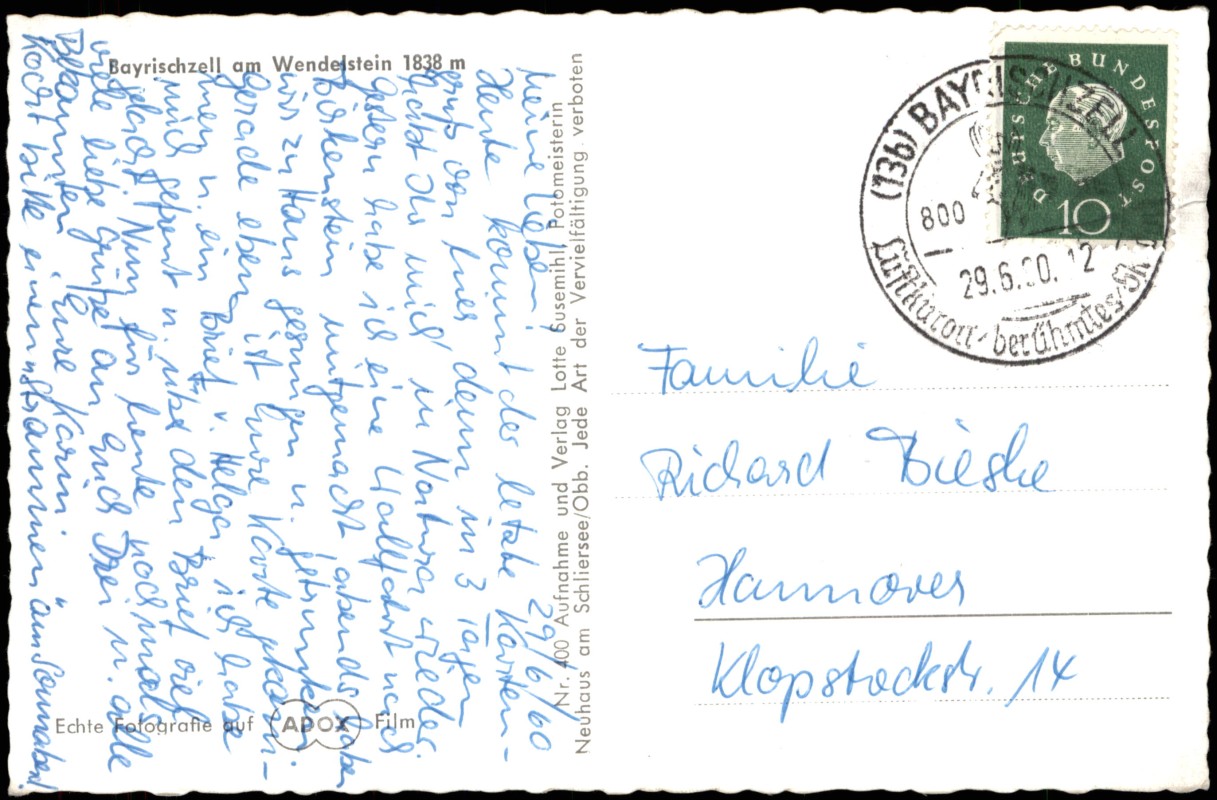 Bayrischzell am Wendelstein 1838 m
29/6/60
Meine Lieben!
Heute kommt der letzte Karten-
gruß von hier denn in 3 Tagen
habt Ihr mich in Natura wieder.
Gestern habe ich eine Wallfahrt nach
Birkenstein mitgemacht abends haben
wir zu Haus gesungen u. getrunken.
Gerade eben ist Eure Karte gekom-
men u. ein Brief v. Helga ich habe
mich gefreut u. über den Brief viel
gelacht. Nun für heute nochmals
viele liebe Grüße an Euch Drei u. alle
Bekannten Eure Karin
Kocht bitte einen strammen am Sonnabend.
Echte Fotografie auf ADOX Film
Nr. 400 Aufnahme und Verlag Lotte Susemihl Fotomeisterin
Neuhaus am Schliersee/Obb. Jede Art der Vervielfältigung verboten
DEUTSCHE BUNDESPOST
10
(13b) BAYRISCHZELL
800
29.6.60.12
Luftkurort - berühmtes
Familie
Richard Dieske
Hannover
Klopstockstr. 14